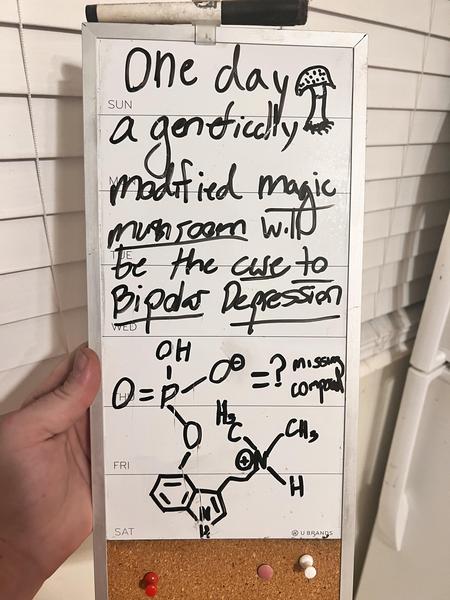 One day
SUN
a genetically
modified magic
mushroom will
TUE
be the cure to
Bipolar Depression
WED
OH
O=P O⊖ =? missing
compound
THU
O H₃C CH₃
FRI ⊕N
H
N
H
SAT U BRANDS